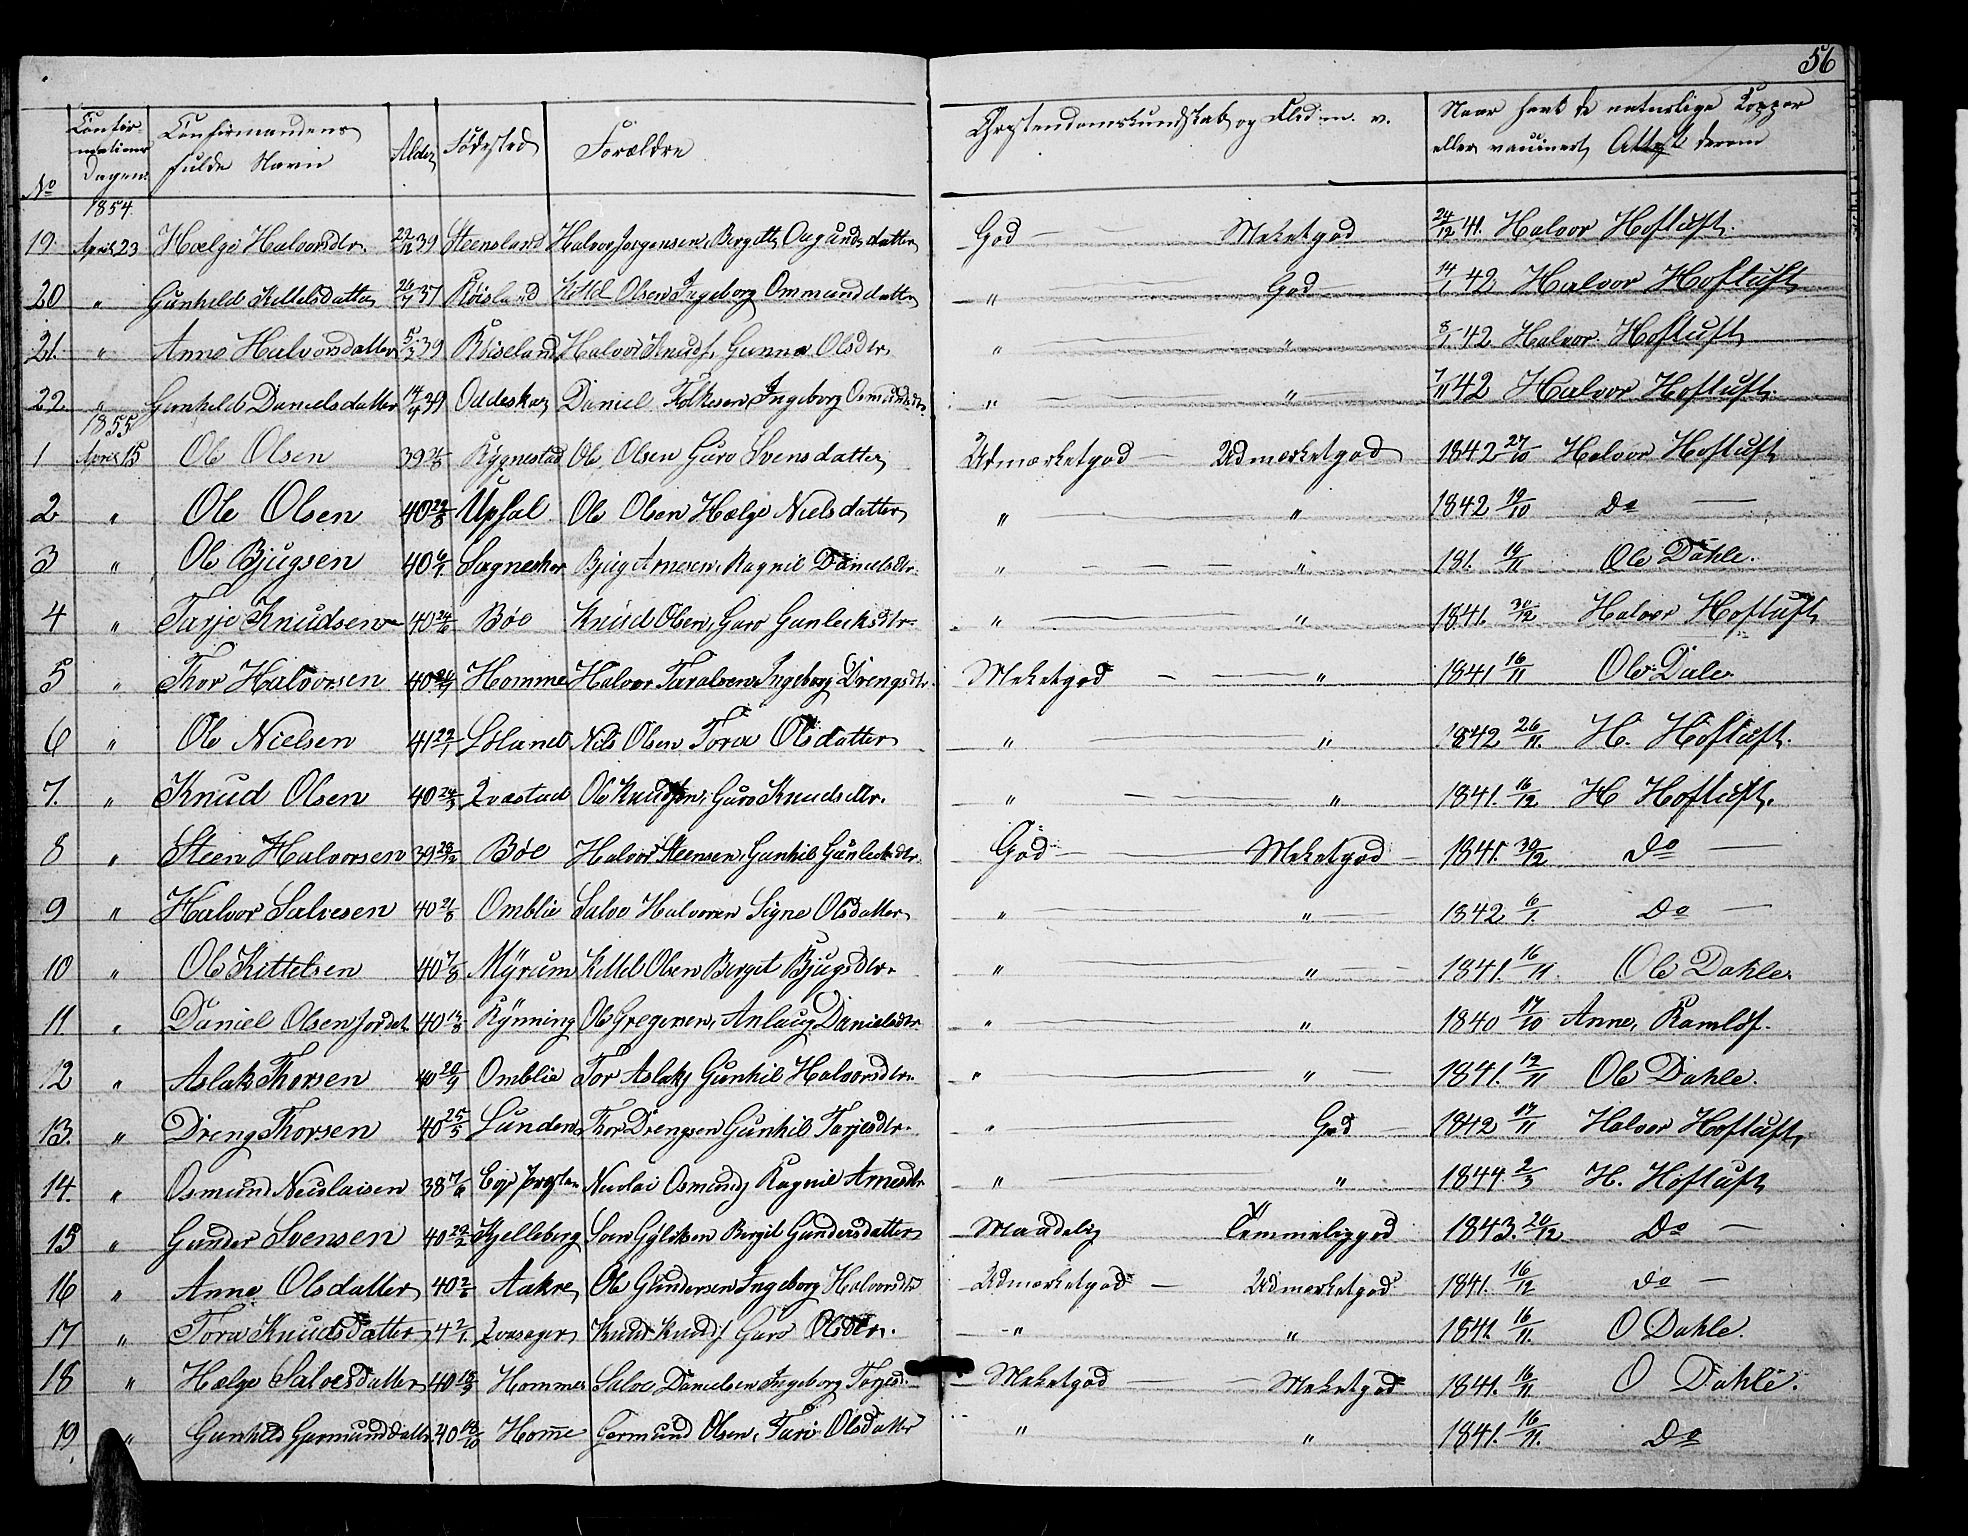 56
No | Confirmations Dagen | Confirmandens fulde Navn | Alder | Fødested | Forældre | Christendomskundskab og Flid m. v. | Naar havt de naturlige Kopper eller vaccineret, Attest derom
1854
19 April 23 Hælge Halvorsdtr. 39 Steensland Halvor Jørgensen, Bergitte Aagundsdatter God — Meketgod 24/12 41. Halvor Hoftuft.
20 " Gunhild Kittelsdatter 37 Røisland Kittel Olsen Ingeborg Ommundsdatter " — God 14/1 42 Halvor Hoftuft
21. " Anne Halvorsdatter 5/3 39 Røiseland Halvor Knuds. Gunna Olsdtr " — " 42. Halvor Hoftuft
22. " Gunhild Danielsdatter 39 Oddeskar Daniel Folkesen, Ingeborg Osmundsdtr " — " 7/11 42 Halvor Hoftuft.
1855
1 April 15 Ole Olsen 39 Rygnestad Ole Olsen Guro Svensdatter Udmærketgod — Udmærketgod 1842 27/10 Halvor Hoftuft
2 " Ole Olsen 40 Upsal Ole Olsen Hælge Nielsdatter " — " 1842 19/10 Do —
3 " Ole Bjugsen 40 Sagneskar Bjug Arnesen, Ragnil Danielsdtr. " — " 181. 19/11 Ole Dahle.
4 " Tarje Knudsen 40 Bøe Knud Olsen, Guro Gunleiksdtr. " — " 1841. 30/12 Halvor Hoftuft
5 " Thor Halvorsen 40 Homme Halvor Taralsen, Ingeborg Drengsdtr. Meketgod — " 1841 16/11 Ole Dale
6 " Ole Nielsen 41 Nils Olsen Tora Olsdatter " — " 1842 26/11. H. Hoftuft.
7. " Knud Olsen 40 Qvæstad Ole Knudsen, Guro Knudsdtr. " — " 1841. 16/12 H Hoftuft.
8 " Steen Halvorsen 39 Bøe Halvor Steensen, Gunhil Gunleiksdtr. God — Meketgod — 1841. 30/12 Do —
9 " Halvor Salvesen 40 Omblie Salve Halvorsen Signe Olsdatter " — " 1842. 6/1. Do —
10 " Ole Kittelsen 40 7/8 Myrum Kittel Olsen Bergit Bjugsdtr. " — " 1841. 16/11. Ole Dahle.
11 " Daniel Olsen Jordet 40 13/8 Rynning Ole Gregersen, Anlaug Danielsdtr " — " 1840 17/10 Anne, Ramløf.
12 " Aslak Thorsen 40 20/9 Omblie Tor Aslaks Gunhil Halvorsdtr. " — " 1841. 12/11 Ole Dahle.
13. " Dreng Thorsen 40 25/5 Lunden Thor Drengsen Gunhil Tarjesdtr. " — God 1842 17/11 Halvor Hoftuft
14. " Osmund Neulaisen 38 Neulai Osmunds Ragnil Arnesdtr " — " 1844. 2/3 H. Hoftuft
15 " Gunder Svensen 40 29/2 Kjelleberg Sven Bergit Gundersdatter Maadelig Temmeliggod 1843. 20/12 Do —
16 " Anne Olsdatter 40 Aakre Ole Gundersen Ingeborg Halvorsdtr Udmærketgod — Udmærketgod 1841. 16/12 Do —
17 " Tora Knudsdatter 4 2/1. Knud Knuds Guro Olsdtr. " " 1841 16/11. O Dahle.
18 " Hælge Salvesdatter 40 Homme Salve Danielsen Ingeborg Torjesd. Meketgod — Meketgod 1841. 16/11. O Dahle.
19 " Gunhild Germunddatter 40 18/10 Home Germund Olsen, Taro Olsdatter " " 1841. 16/11. Do